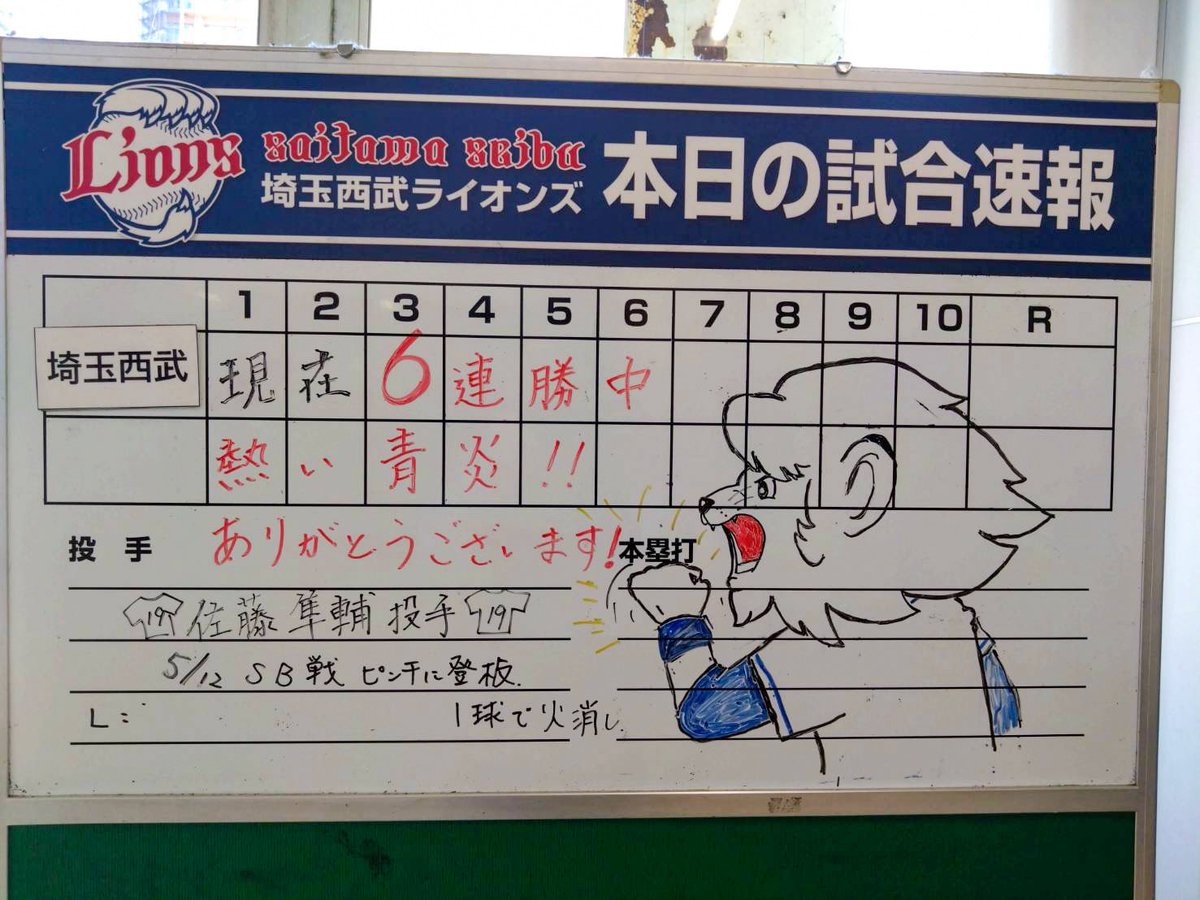 Lions
saitama seibu
埼玉西武ライオンズ
本日の試合速報
1 2 3 4 5 6 7 8 9 10 R
埼玉西武 現在6連勝中
熱い青炎!!
投手 ありがとうございます! 本塁打
19 佐藤隼輔投手 19
5/12 SB戦 ピンチに登板.
L: 1球で火消し